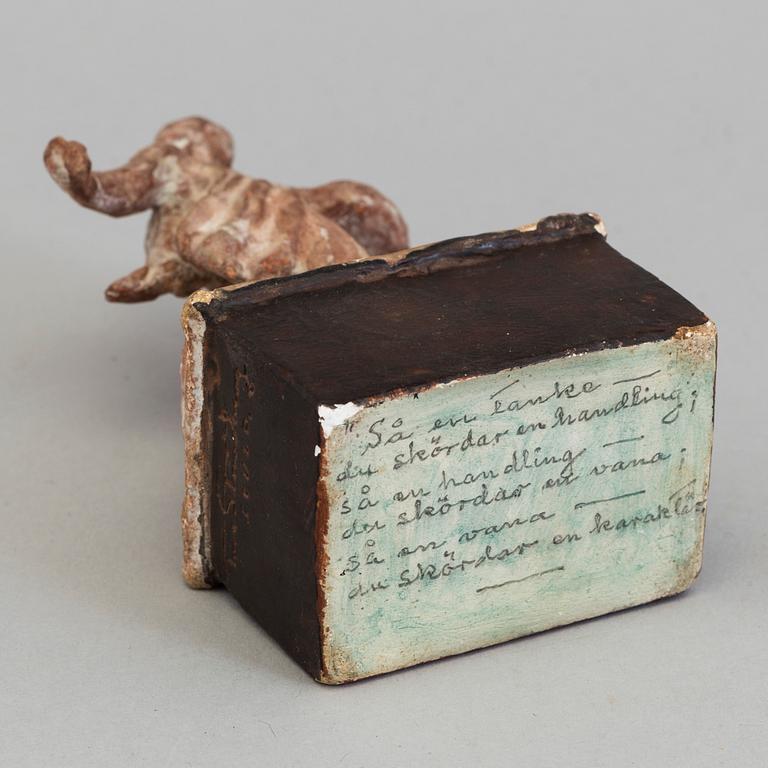 "Så en tanke —
du skördar en handling;
så en handling —
du skördar en vana;
så en vana —
du skördar en karaktär